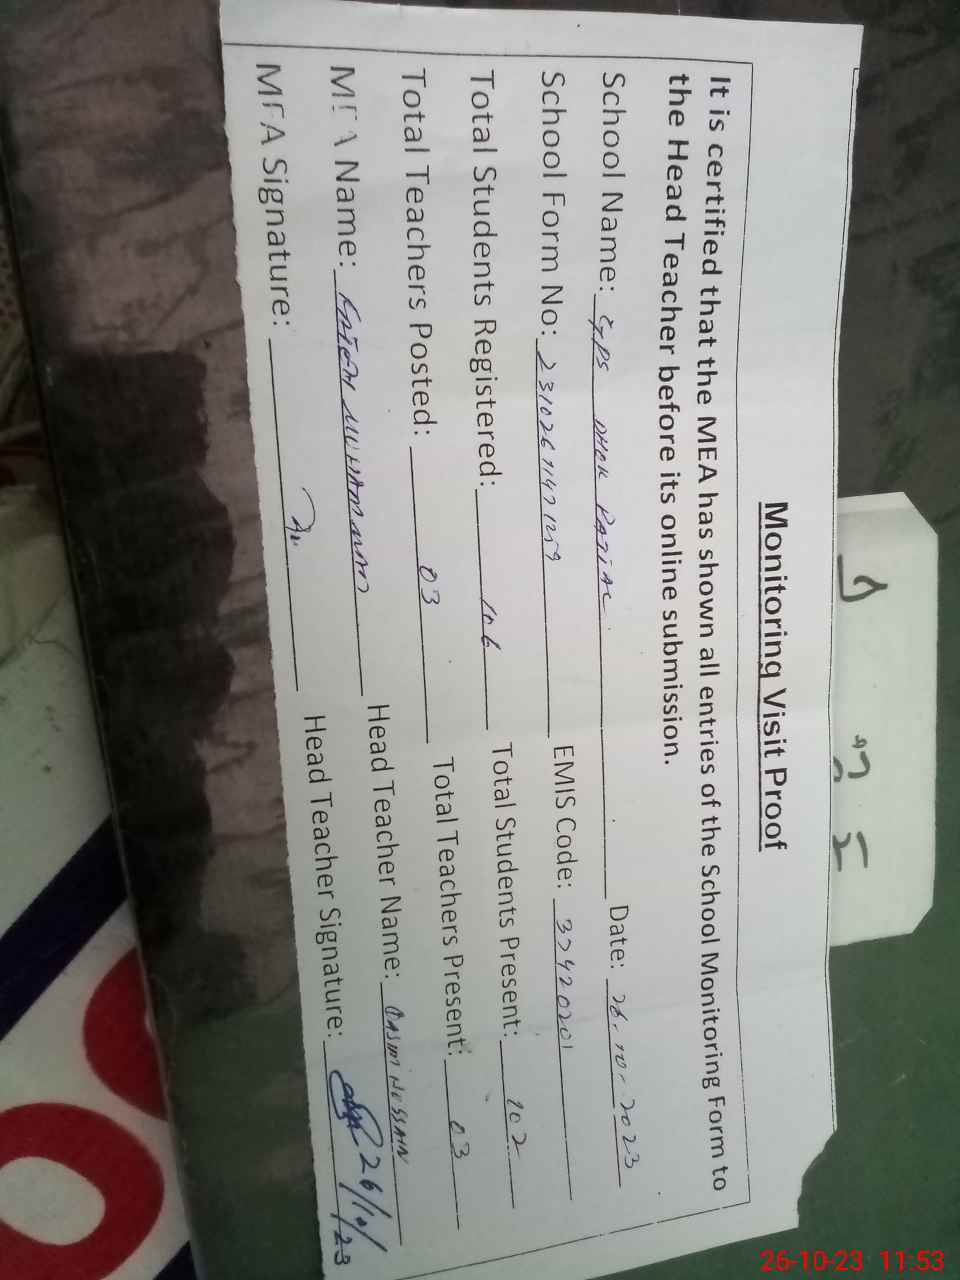 Monitoring Visit Proof
It is certified that the MEA has shown all entries of the School Monitoring Form to
the Head Teacher before its online submission.
School Name: GPS DHOK Date: 26-10-2023
School Form No: EMIS Code: 37420201
Total Students Registered: 106 Total Students Present: 102
Total Teachers Posted: 03 Total Teachers Present: 03
MEA Name: MUHAMMAD Head Teacher Name: QASIM HUSSAIN
MEA Signature: Head Teacher Signature: 26/10/23
26-10-23 11:53